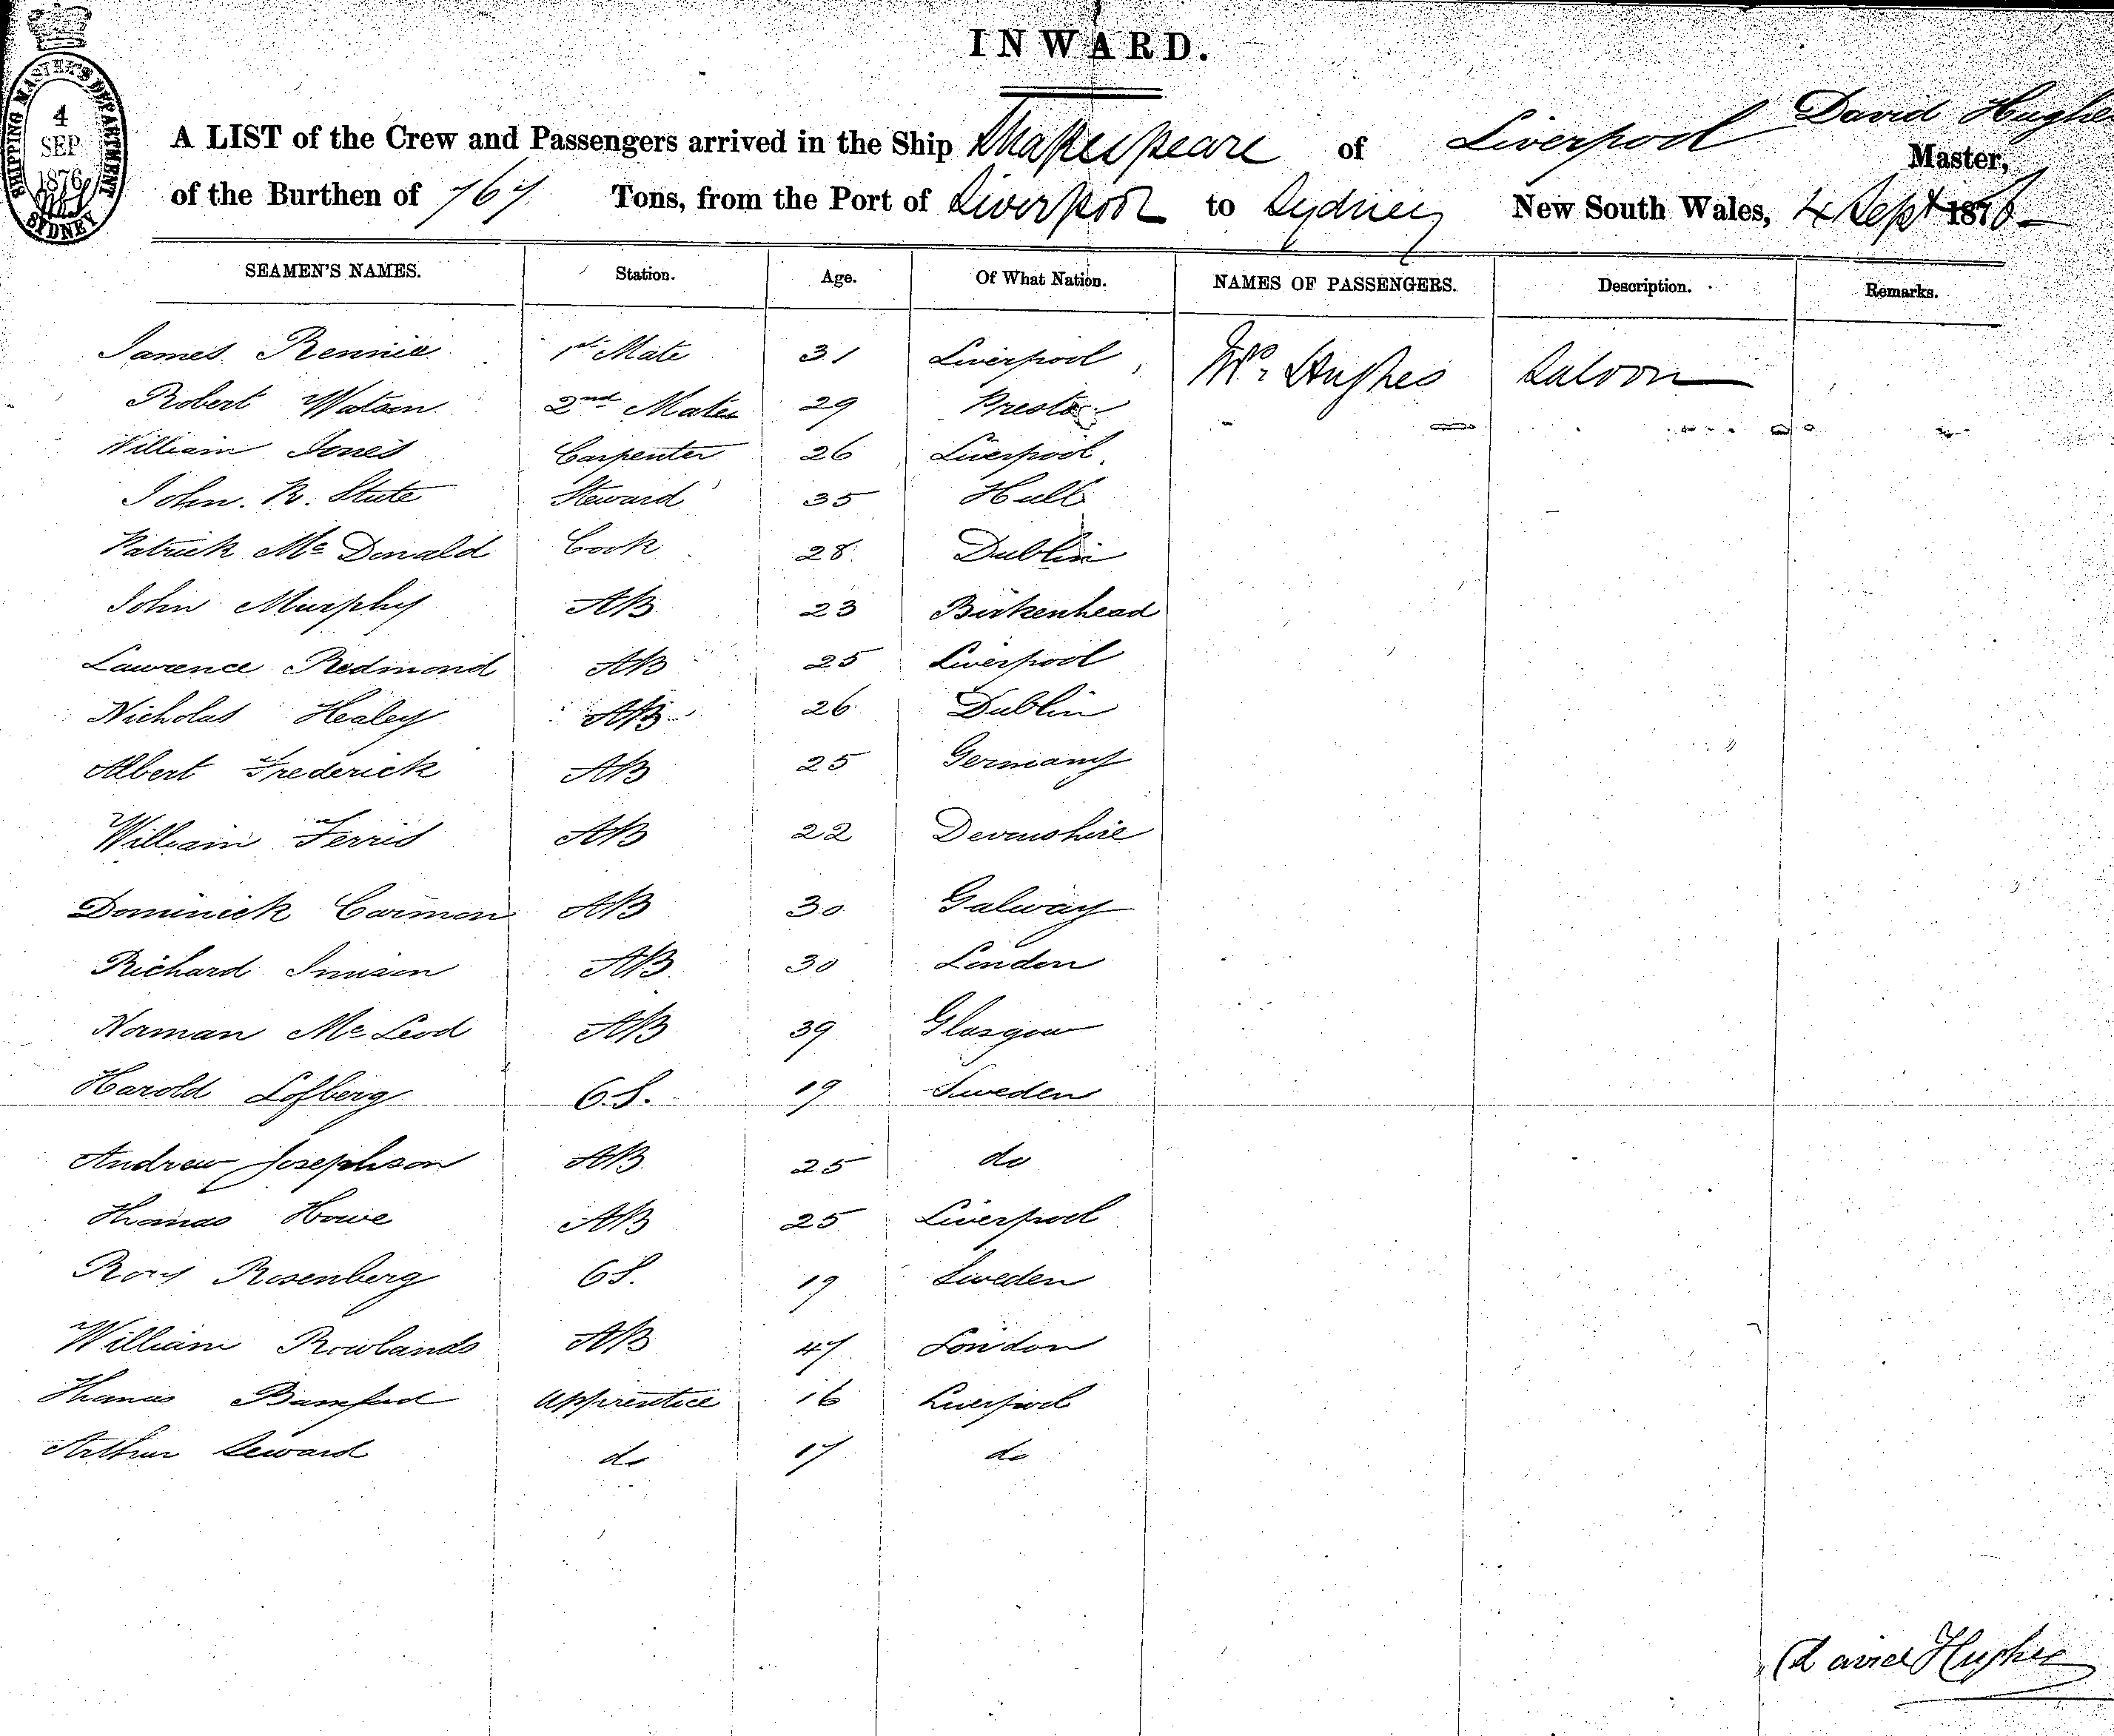 INWARD.
SHIPPING MASTER'S DEPARTMENT
4
SEP
1876
SYDNEY
David Hughes
A LIST of the Crew and Passengers arrived in the Ship Shakespeare of Liverpool Master,
of the Burthen of 767 Tons, from the Port of Liverpool to Sydney New South Wales, 4 Sept 1876
SEAMEN'S NAMES. Station. Age. Of What Nation. NAMES OF PASSENGERS. Description. Remarks.
James Rennie 1st Mate 31 Liverpool Mrs. Hughes Saloon
Robert Watson 2nd Mate 29 Preston
William Jones Carpenter 26 Liverpool.
John. R. Stute Steward 35 Hull
Patrick Mc Donald Cook 28
Dublin
John Murphy AB 23 Birkenhead
Lawrence Redmond AB 25 Liverpool
Nicholas Healey AB 26 Dublin
Albert Frederick AB 25 Germany
William Ferris AB 22 Devonshire
Dominick Carmon AB 30 Galway
Richard AB 30 London
Norman Mc Leod AB 39 Glasgow
Harold Lofberg O.S. 19 Sweden
Andrew Josephson AB 25 do
Thomas Howe AB 25 Liverpool
Rory Rosenberg OS. 19 Sweden
William Rowlands AB 47 London
Thomas Bamford Apprentice 16 Liverpool
Arthur Seward do 17 do
David Hughes